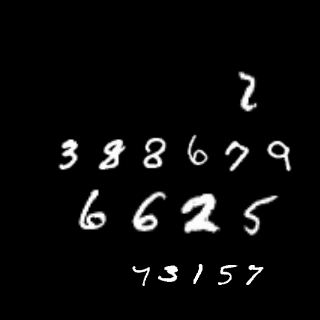 2
388679
6625
73157